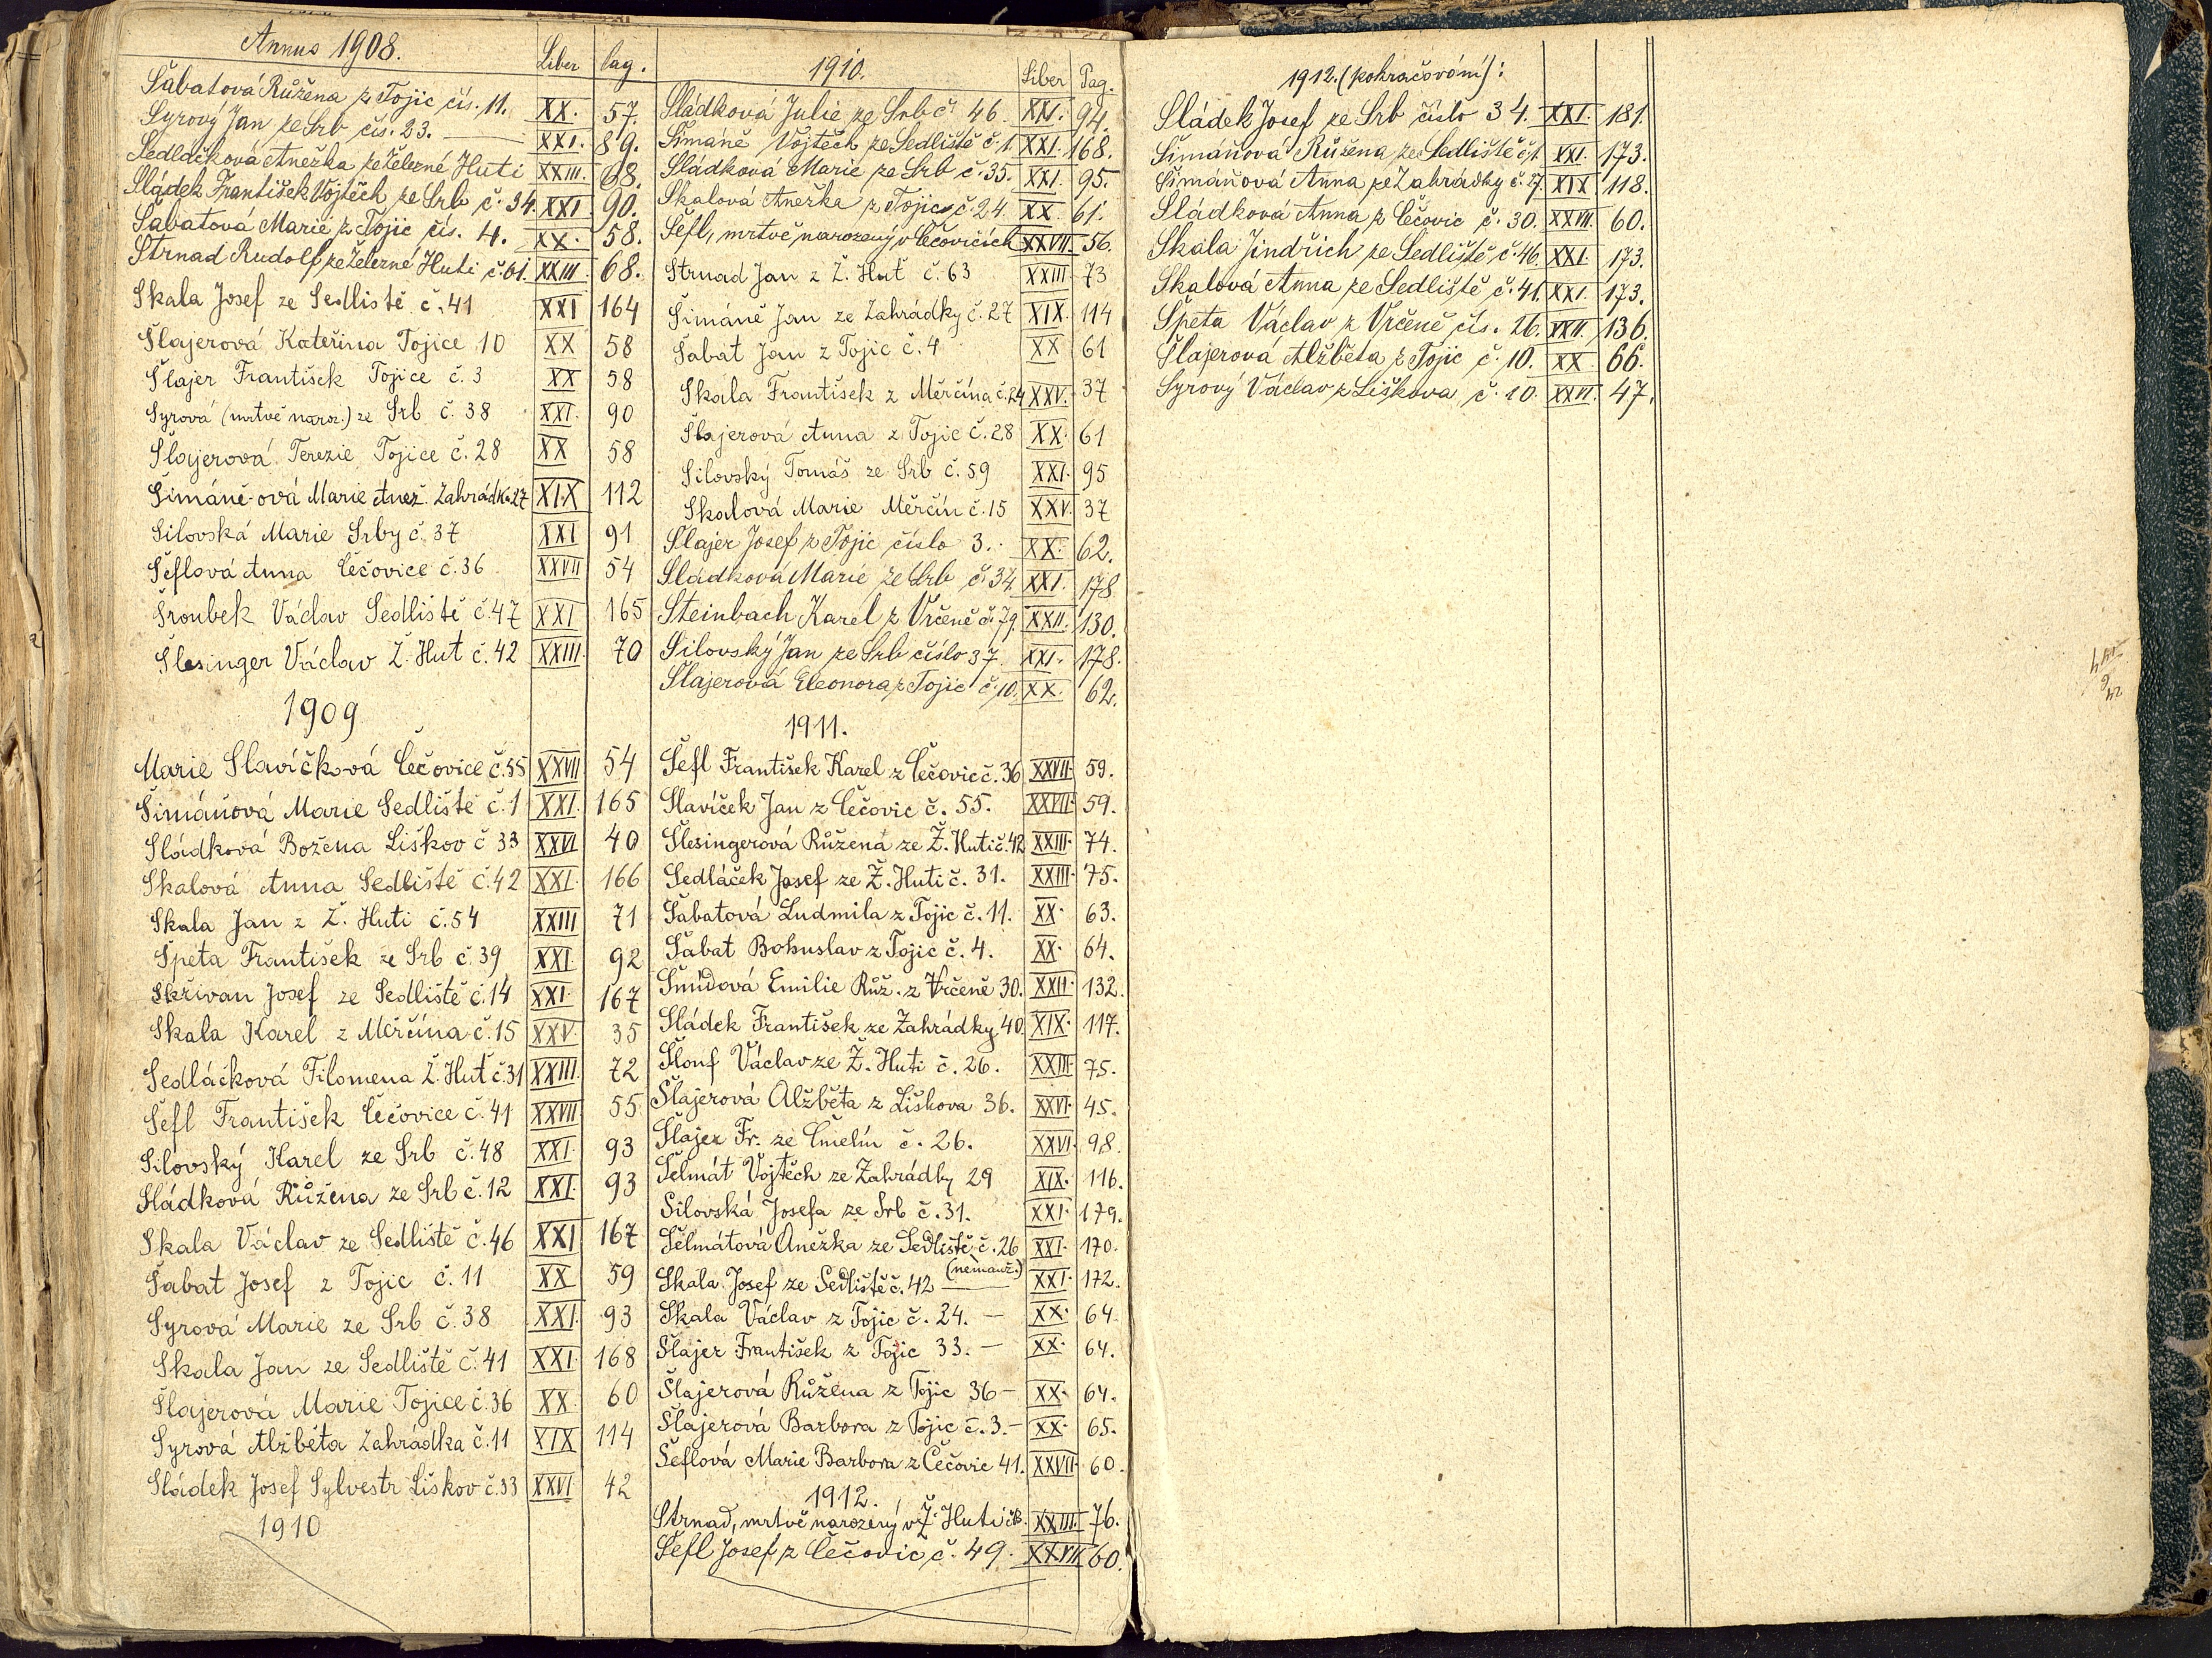 Annus 1908. Liber Pag.
Šabatová Růžena z Tojic čís. 11. XX. 57.
Syrový Jan ze Srb čís. 23. XXI. 89.
Sedláčková Anežka ze Železné Huti XXIII. 68.
Sládek František Vojtěch ze Srb č. 34. XXI. 90.
Šabatová Marie z Tojic čís. 4. XX. 58.
Strnad Rudolf ze Železné Huti č. 61. XXIII. 68.
Skala Josef ze Sedliště č. 41 XXI 164
Šlajerová Kateřina Tojice 10 XX 58
Šlajer František Tojice č. 3 XX 58
Syrová (mrtvě naroz.) ze Srb č. 38 XXI. 90
Šlajerová Terezie Tojice č. 28 XX 58
Šimáně-ová Marie Anež. Zahrádka 27 XIX 112
Silovská Marie Srby č. 37 XXI 91
Šeflová Anna Čečovice č. 36 XXVII 54
Šroubek Václav Sedliště č. 47 XXI 165
Šlesinger Václav Ž. Huť č. 42 XXIII. 70
1909
Marie Slavíčková Čečovice č. 55 XXVII 54
Šimáňová Marie Sedliště č. 1 XXI. 165
Sládková Božena Liškov č 33 XXVI 40
Skalová Anna Sedliště č. 42 XXI. 166
Skala Jan z Ž. Huti č. 54 XXIII 71
Špeta František ze Srb č. 39 XXI 92
Skřivan Josef ze Sedliště č. 14 XXI. 167
Skala Karel z Měrčína č. 15 XXV. 35
Sedláčková Filomena Ž. Huť č. 31 XXIII. 72
Šefl František Čečovice č. 41 XXVII 55
Silovský Karel ze Srb č. 48 XXI. 93
Sládková Růžena ze Srb č. 12 XXI. 93
Skala Václav ze Sedliště č. 46 XXI 167
Šabat Josef z Tojic č. 11 XX 59
Syrová Marie ze Srb č. 38 XXI. 93
Skala Jan ze Sedliště č. 41 XXI. 168
Šlajerová Marie Tojice č. 36 XX. 60
Syrová Alžběta Zahrádka č. 11 XIX 114
Sládek Josef Sylvestr Liškov č. 33 XXVI 42
1910
1910. Liber Pag.
Sládková Julie ze Srb č. 46. XXI. 94.
Šimáně Vojtěch ze Sedliště č. 1. XXI. 168.
Sládková Marie ze Srb č. 35. XXI. 95.
Skalová Anežka z Tojic č. 24. XX. 61.
Šefl, mrtvě narozený v Čečovicích XXVII. 56.
Strnad Jan z Ž. Huť č. 63 XXIII. 73
Šimáně Jan ze Zahrádky č. 27 XIX. 114
Šabat Jan z Tojic č. 4 XX 61
Skala František z Měrčína č. 24 XXV. 37
Šlajerová Anna z Tojic č. 28 XX. 61
Silovský Tomáš ze Srb č. 59 XXI. 95
Skalová Marie Měrčín č. 15 XXV. 37
Šlajer Josef z Tojic číslo 3. XX. 62.
Sládková Marie ze Srb č. 34. XXI. 178
Steinbach Karel z Vrčeně č. 79. XXII. 130.
Silovský Jan ze Srb číslo 37. XXI. 178.
Šlajerová Eleonora z Tojic č. 10. XX. 62.
1911.
Šefl František Karel z Čečovic č. 36 XXVII. 59.
Slavíček Jan z Čečovic č. 55. XXVII. 59.
Šlesingerová Růžena ze Ž. Huti č. 42 XXIII. 74.
Sedláček Josef ze Ž. Huti č. 31. XXIII. 75.
Šabatová Ludmila z Tojic č. 11. XX. 63.
Šabat Bohuslav z Tojic č. 4. XX. 64.
Šmídová Emilie Růž. z Vrčeně 30. XXII. 132.
Sládek František ze Zahrádky 40. XIX. 117.
Šlouf Václav ze Ž. Huti č. 26. XXIII. 75.
Šlajerová Alžběta z Liškova 36. XXVI. 45.
Šlajer Fr. ze Čmelín č. 26. XXVI. 98.
Šelmát Vojtěch ze Zahrádky 29 XIX. 116.
Silovská Josefa ze Srb č. 31. XXI. 179.
Šelmátová Anežka ze Sedliště č. 26 XXI. 170.
Skala Josef ze Sedliště č. 42 (nemanž.) XXI. 172.
Skala Václav z Tojic č. 24. — XX. 64.
Šlajer František z Tojic 33. — XX. 64.
Šlajerová Růžena z Tojic 36 — XX. 64.
Šlajerová Barbora z Tojic č. 3. — XX. 65.
Šeflová Marie Barbora z Čečovic 41. XXVII. 60.
1912.
Strnad, mrtvě narozený v Ž. Huti XXIII. 76.
Šefl Josef z Čečovic č. 49. XXVII. 60.
1912. (pokračování):
Sládek Josef ze Srb číslo 34. XXI. 181.
Šimáňová Růžena ze Sedliště č. 1. XXI. 173.
Šimáňová Anna ze Zahrádky č. 27. XIX 118.
Sládková Anna z Čečovic č. 30. XXVII. 60.
Skala Jindřich ze Sedliště č. 46. XXI. 173.
Skalová Anna ze Sedliště č. 41. XXI. 173.
Špeta Václav z Vrčeně čís. 26. XXII. 136.
Šlajerová Alžběta z Tojic č. 10. XX. 66.
Syrový Václav z Liškova č. 10. XXVI. 47.